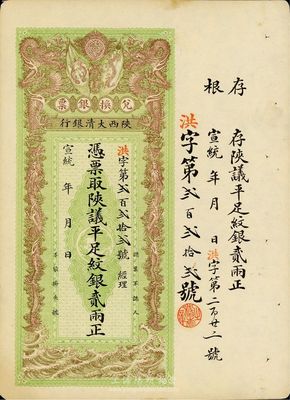 存根
存陝議平足紋銀貳兩正
宣統 年 月 日洪字第二百廿二號
洪字第貳百貳拾貳號
兌換銀票
陝西大清銀行
洪字第貳百貳拾貳號 經理
憑票取陝議平足紋銀貳兩正
宣統 年 月 日